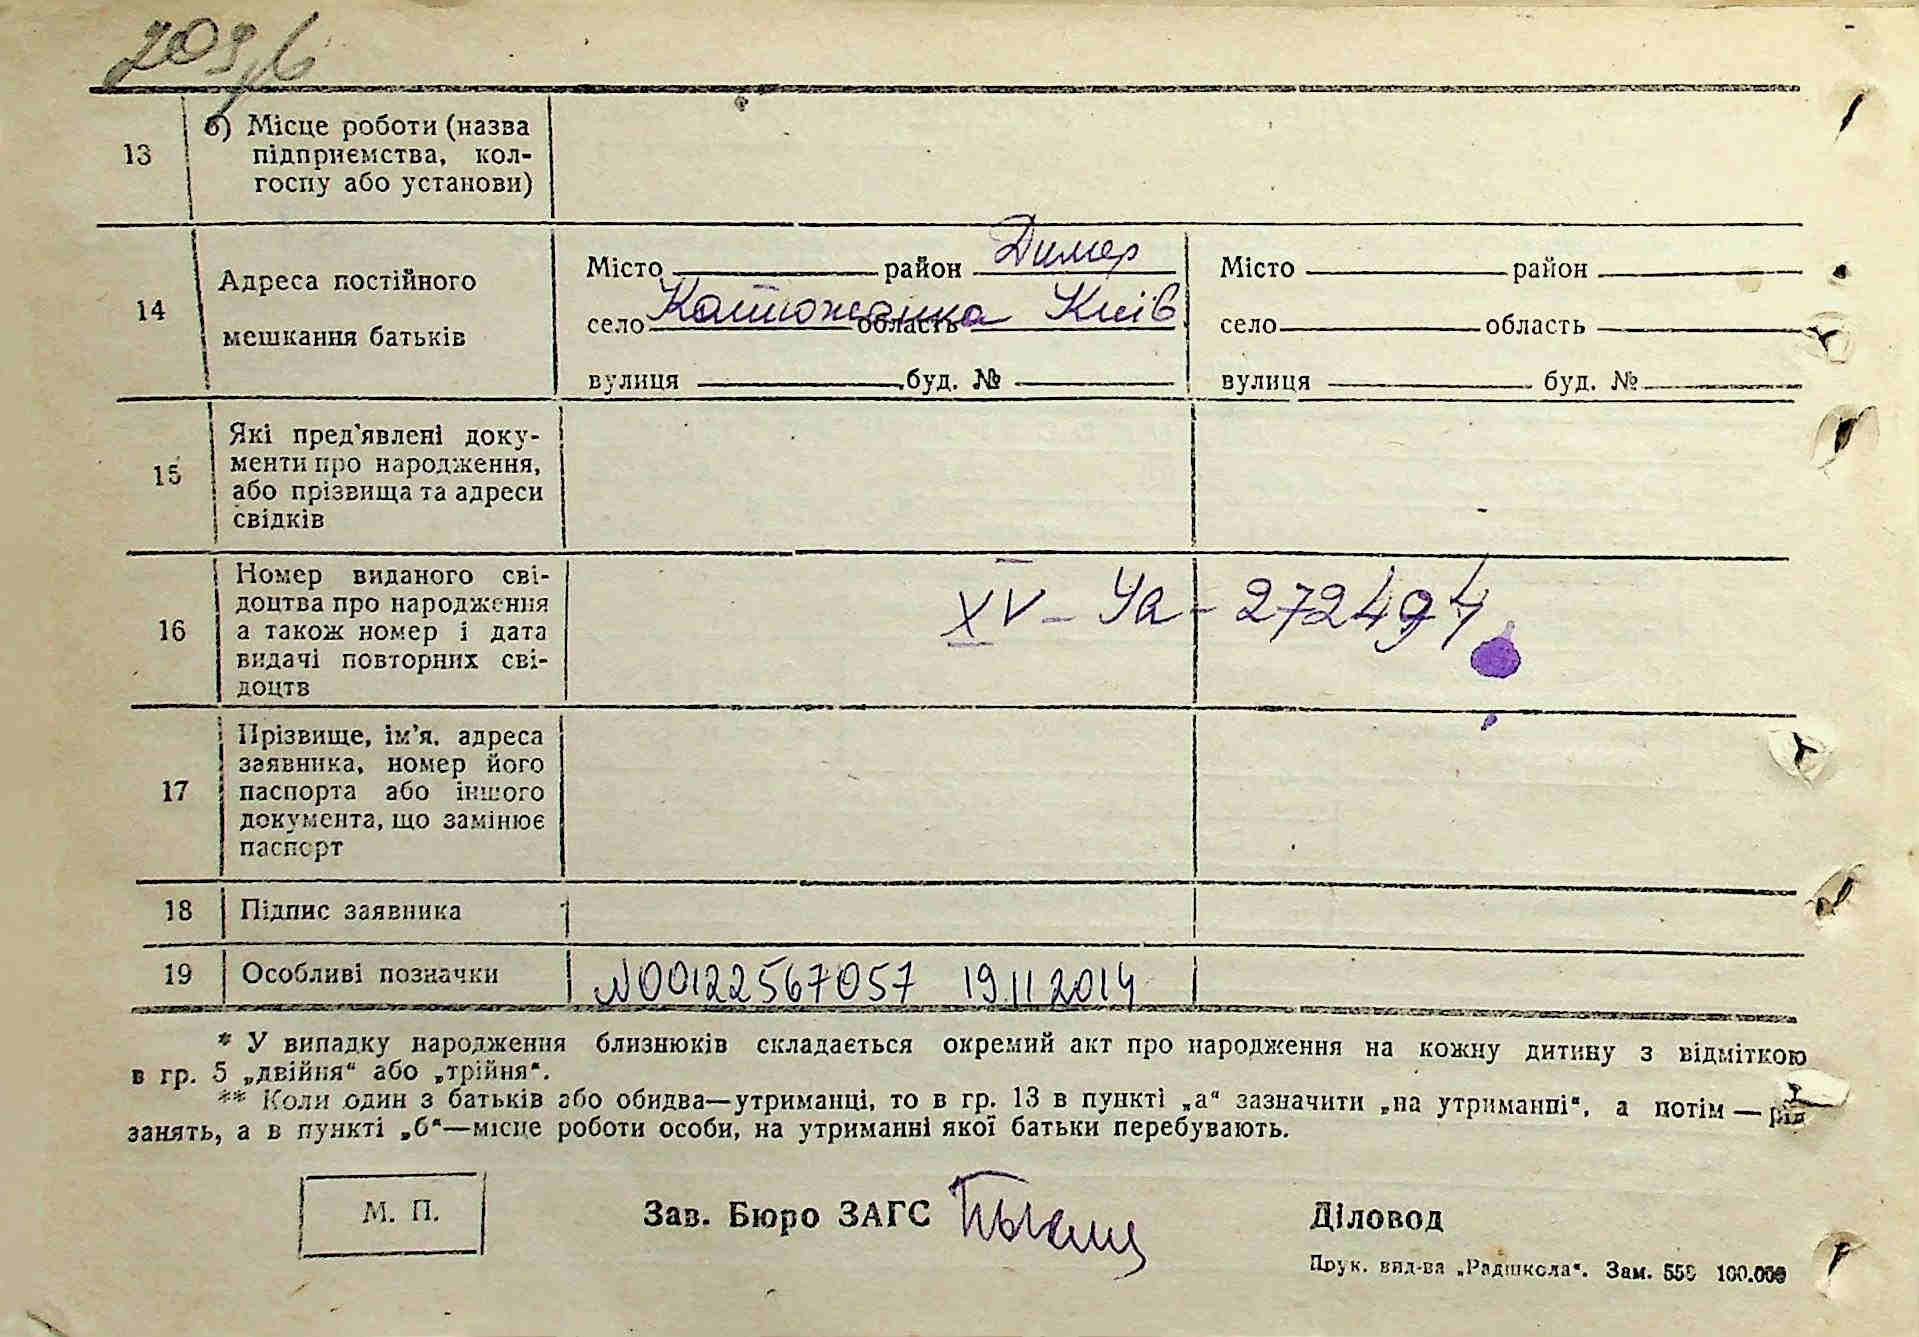 13
б) Місце роботи (назва
підприємства, кол-
госпу або установи)
14
Адреса постійного
мешкання батьків
Місто район Димер
село Катюжанка область Київ
вулиця буд. №
Місто район
село область
вулиця буд. №
15
Які пред'явлені доку-
менти про народження,
або прізвища та адреси
свідків
16
Номер виданого сві-
доцтва про народження
а також номер і дата
видачі повторних сві-
доцтв
XV - Уа - 272494
17
Прізвище, ім'я, адреса
заявника, номер його
паспорта або іншого
документа, що замінює
паспорт
18 Підпис заявника
19 Особливі позначки N00122567057 19.11.2014
* У випадку народження близнюків складається окремий акт про народження на кожну дитину з відміткою
в гр. 5 „двійня“ або „трійня“.
** Коли один з батьків або обидва—утриманці, то в гр. 13 в пункті „а“ зазначити „на утриманні“, а потім — рід
занять, а в пункті „б“—місце роботи особи, на утриманні якої батьки перебувають.
М. П.
Зав. Бюро ЗАГС
Діловод
Друк. вид-ва „Радшкола“. Зам. 558 100.000